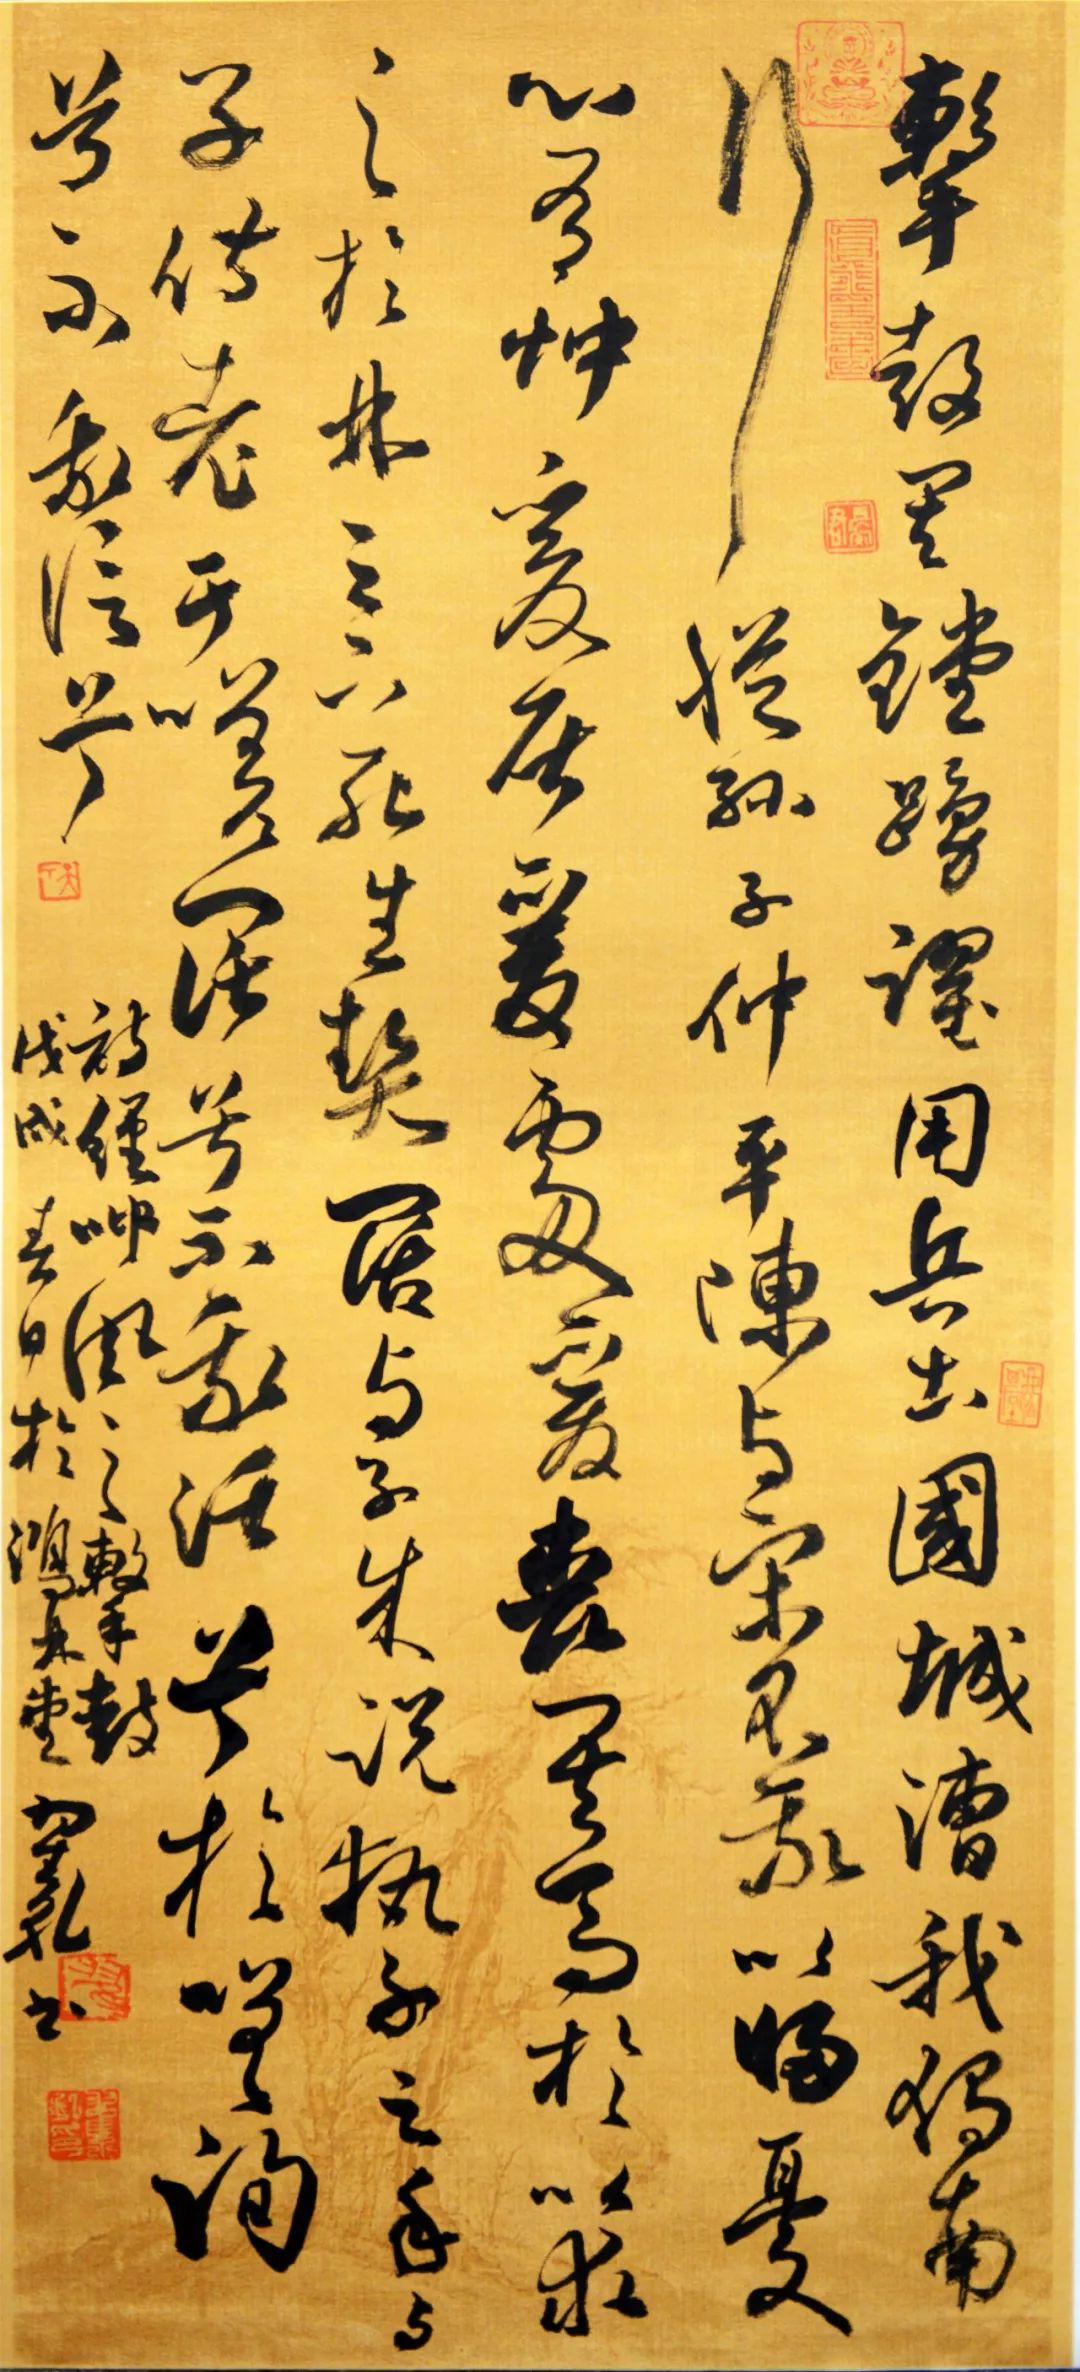 擊鼓其鏜踴躍用兵土國城漕我獨南
行從孫子仲平陳与宋不我以歸憂
心有忡爰居爰處爰喪其馬於以求
之於林之下死生契闊与子成説執子之手与
子偕老于嗟闊兮不我活兮於嗟詢
兮不我信兮
詩經邶風之擊鼓
戊戌春日於鴻